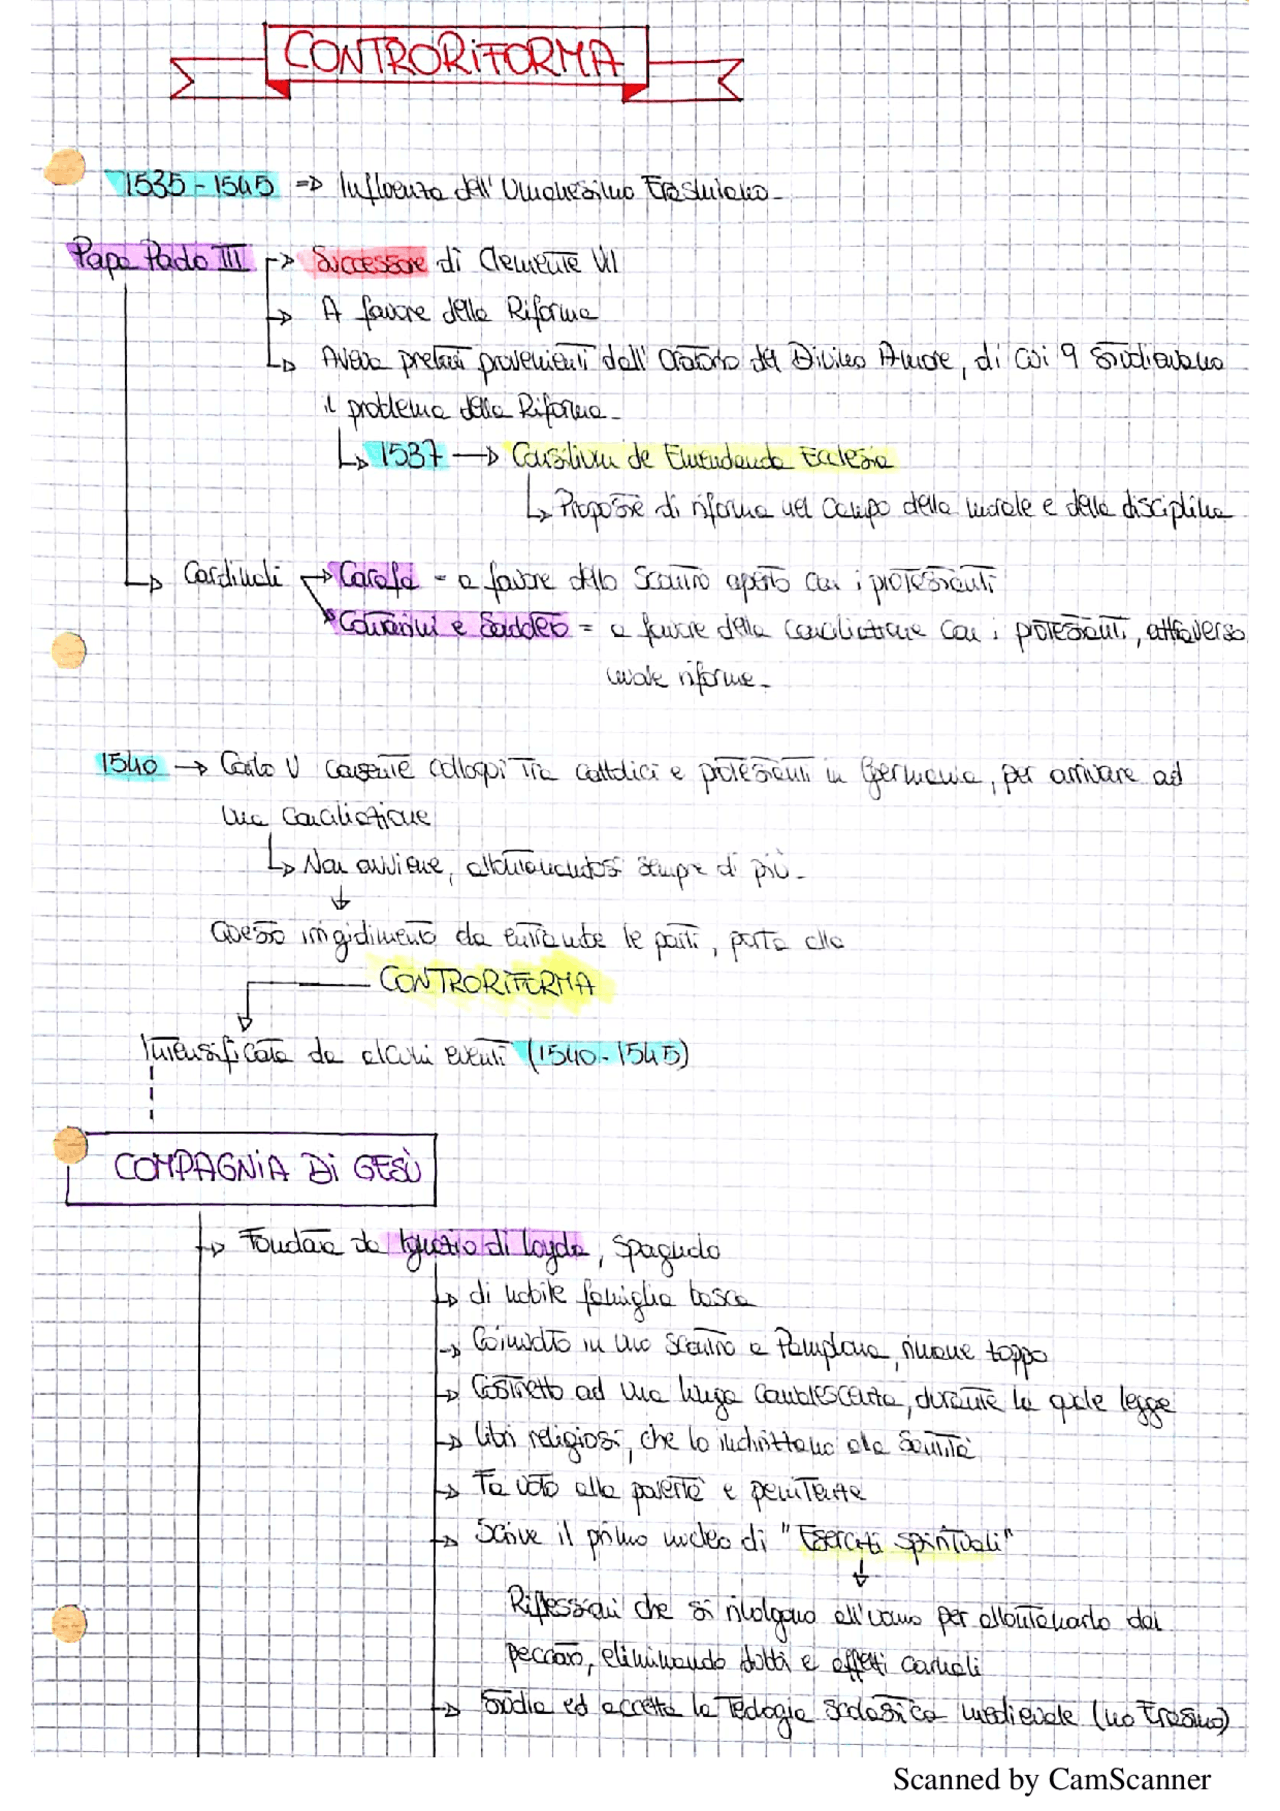 CONTRORIFORMA
1535-1545 => Influenza dell'Umanesimo Erasmiano.
Papa Paolo III → Successore di Clemente VII
→ A favore della Riforma
→ Aveva prelati provenienti dall'Oratorio del Divino Amore, di cui 9 studiavano
il problema della Riforma.
↳ 1537 → Consilium de Emendanda Ecclesia
↳ Proposte di riforma nel campo della morale e della disciplina
→ Cardinali → Carafa = a favore dello scontro aperto con i protestanti
Contarini e Sadoleto = a favore della conciliazione con i protestanti, attraverso
riforme.
1540 → Carlo V consente colloqui tra cattolici e protestanti in Germania, per arrivare ad
una conciliazione
↳ Non avviene, allontanandosi sempre di più.
↓
Questo irrigidimento da entrambe le parti, porta alla
CONTRORIFORMA
Intensificata da alcuni eventi (1540-1545)
COMPAGNIA DI GESÙ
→ Fondata da Ignazio di Loyola, spagnolo
→ di nobile famiglia basca
→ Coinvolto in uno scontro a Pamplona, rimane zoppo
→ Costretto ad una lunga convalescenza, durante la quale legge
→ libri religiosi, che lo indirizzano alla Santità
→ Fa voto alla povertà e penitenza
→ Scrive il primo nucleo di "Esercizi spirituali"
↓
Riflessioni che si rivolgono all'uomo per allontanarlo dal
peccato, eliminando dubbi e affetti carnali
→ Studia ed accetta la Teologia scolastica medievale (no Erasmo)
Scanned by CamScanner